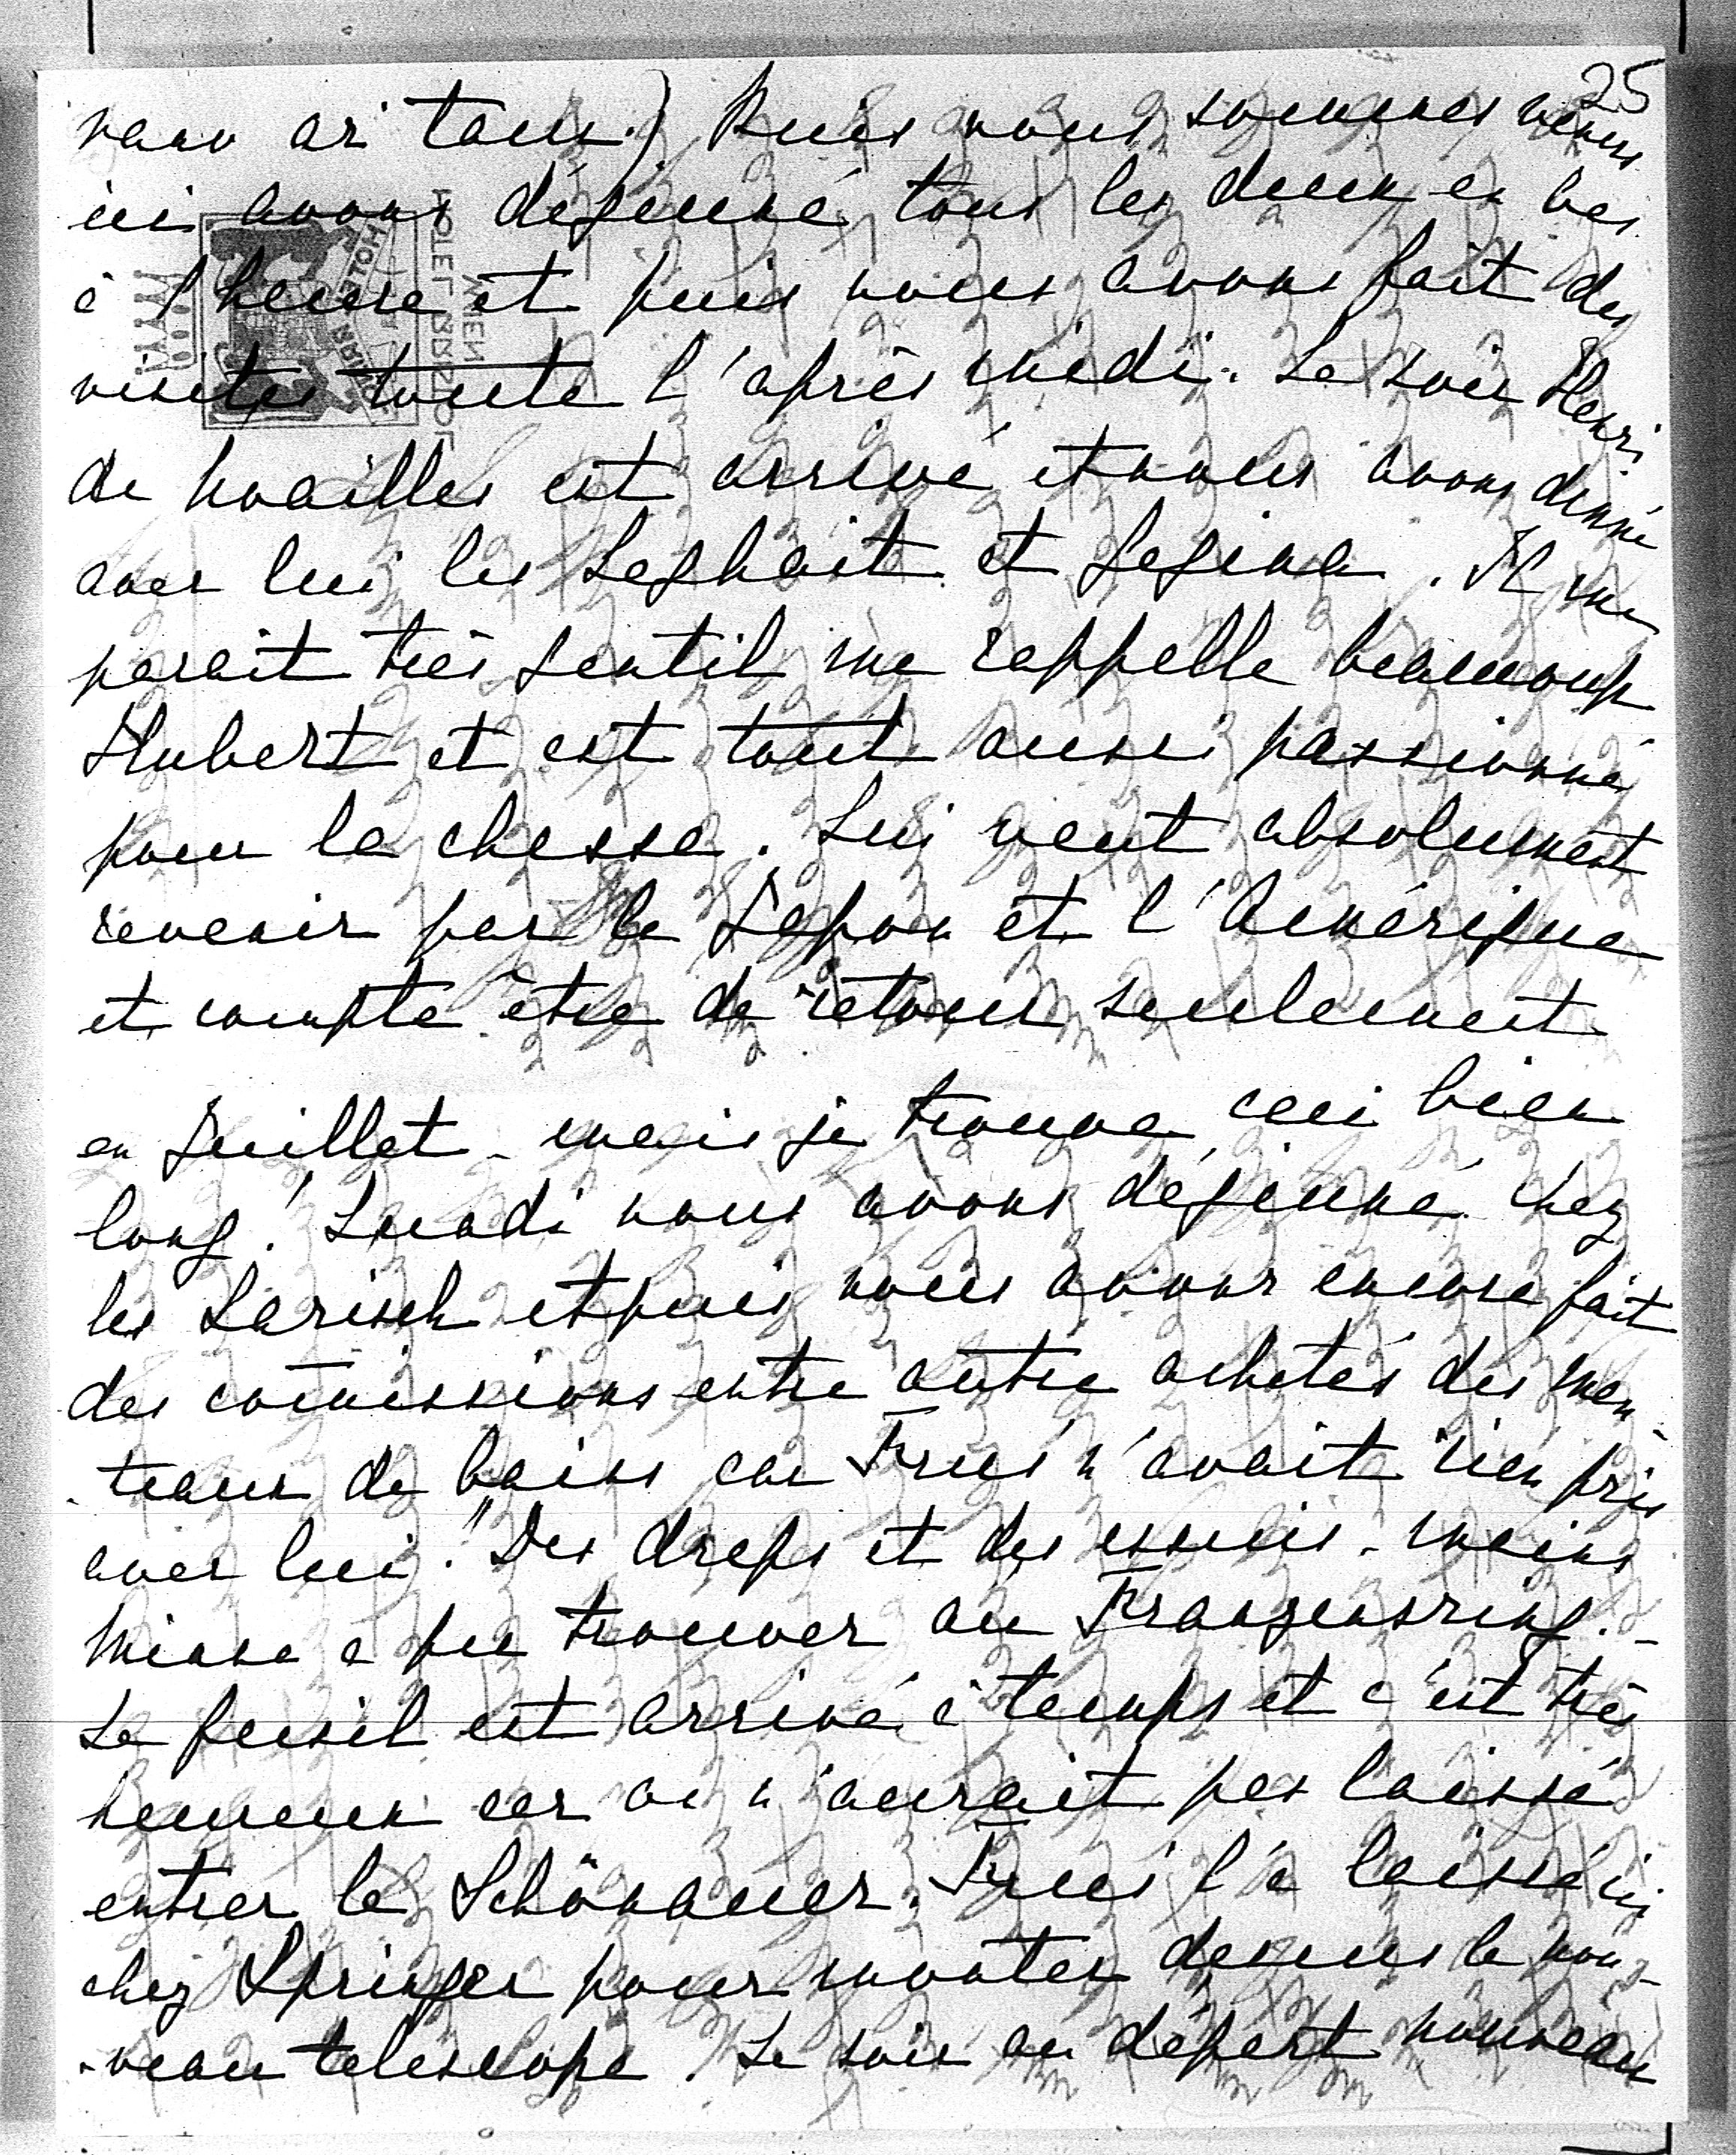 25
tous.) Puis nous sommes venus
ici avons déjeuné tous les deux en bas
à 1 heure et puis nous avons fait des
visites toute l'après midi. Le soir Henri
de Noailles est arrivé et nous avons dinné
avec lui les Leghait et Regina. Il me
parait très gentil me rappelle beaucoup
Hubert et est tout aussi passionné
pour la chasse. Lui veut absolument
revenir par le Japon et l'Amérique
et compte être de retour seulement
en Juillet - mais je trouve ceci bien
long! Lundi nous avons déjeuné chez
les Larisch et puis nous avons encore fait
des comissions entre autre achetés des man
-teaux de bains car Früs n'avait rien pris
avec lui! Des draps et des essuis-mains
Minna a pu trouver au Franzensring. -
Le fusil est arrivé à temps et c'est très
heureux car on n'aurait pas laissé
entrer le Schönauer. Früs l'a laissé ici
chez Springer pour monter dessus le nou-
-veau telescope. Le soir au départ nouveau
HOTEL BRISTOL
WIEN